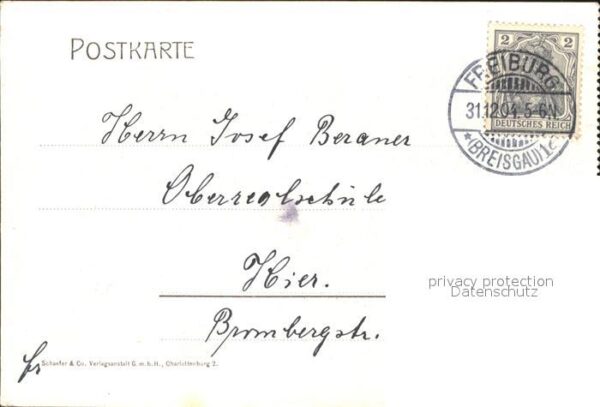 POSTKARTE
2 2
DEUTSCHES REICH
FREIBURG
31.12.04. 5-6N.
*(BREISGAU)1c
Herrn Josef Beraner
Oberrealschule
Hier.
Brombergstr.
privacy protection
Datenschutz
fr
Schaefer & Co. Verlagsanstalt G. m. b. H., Charlottenburg 2.